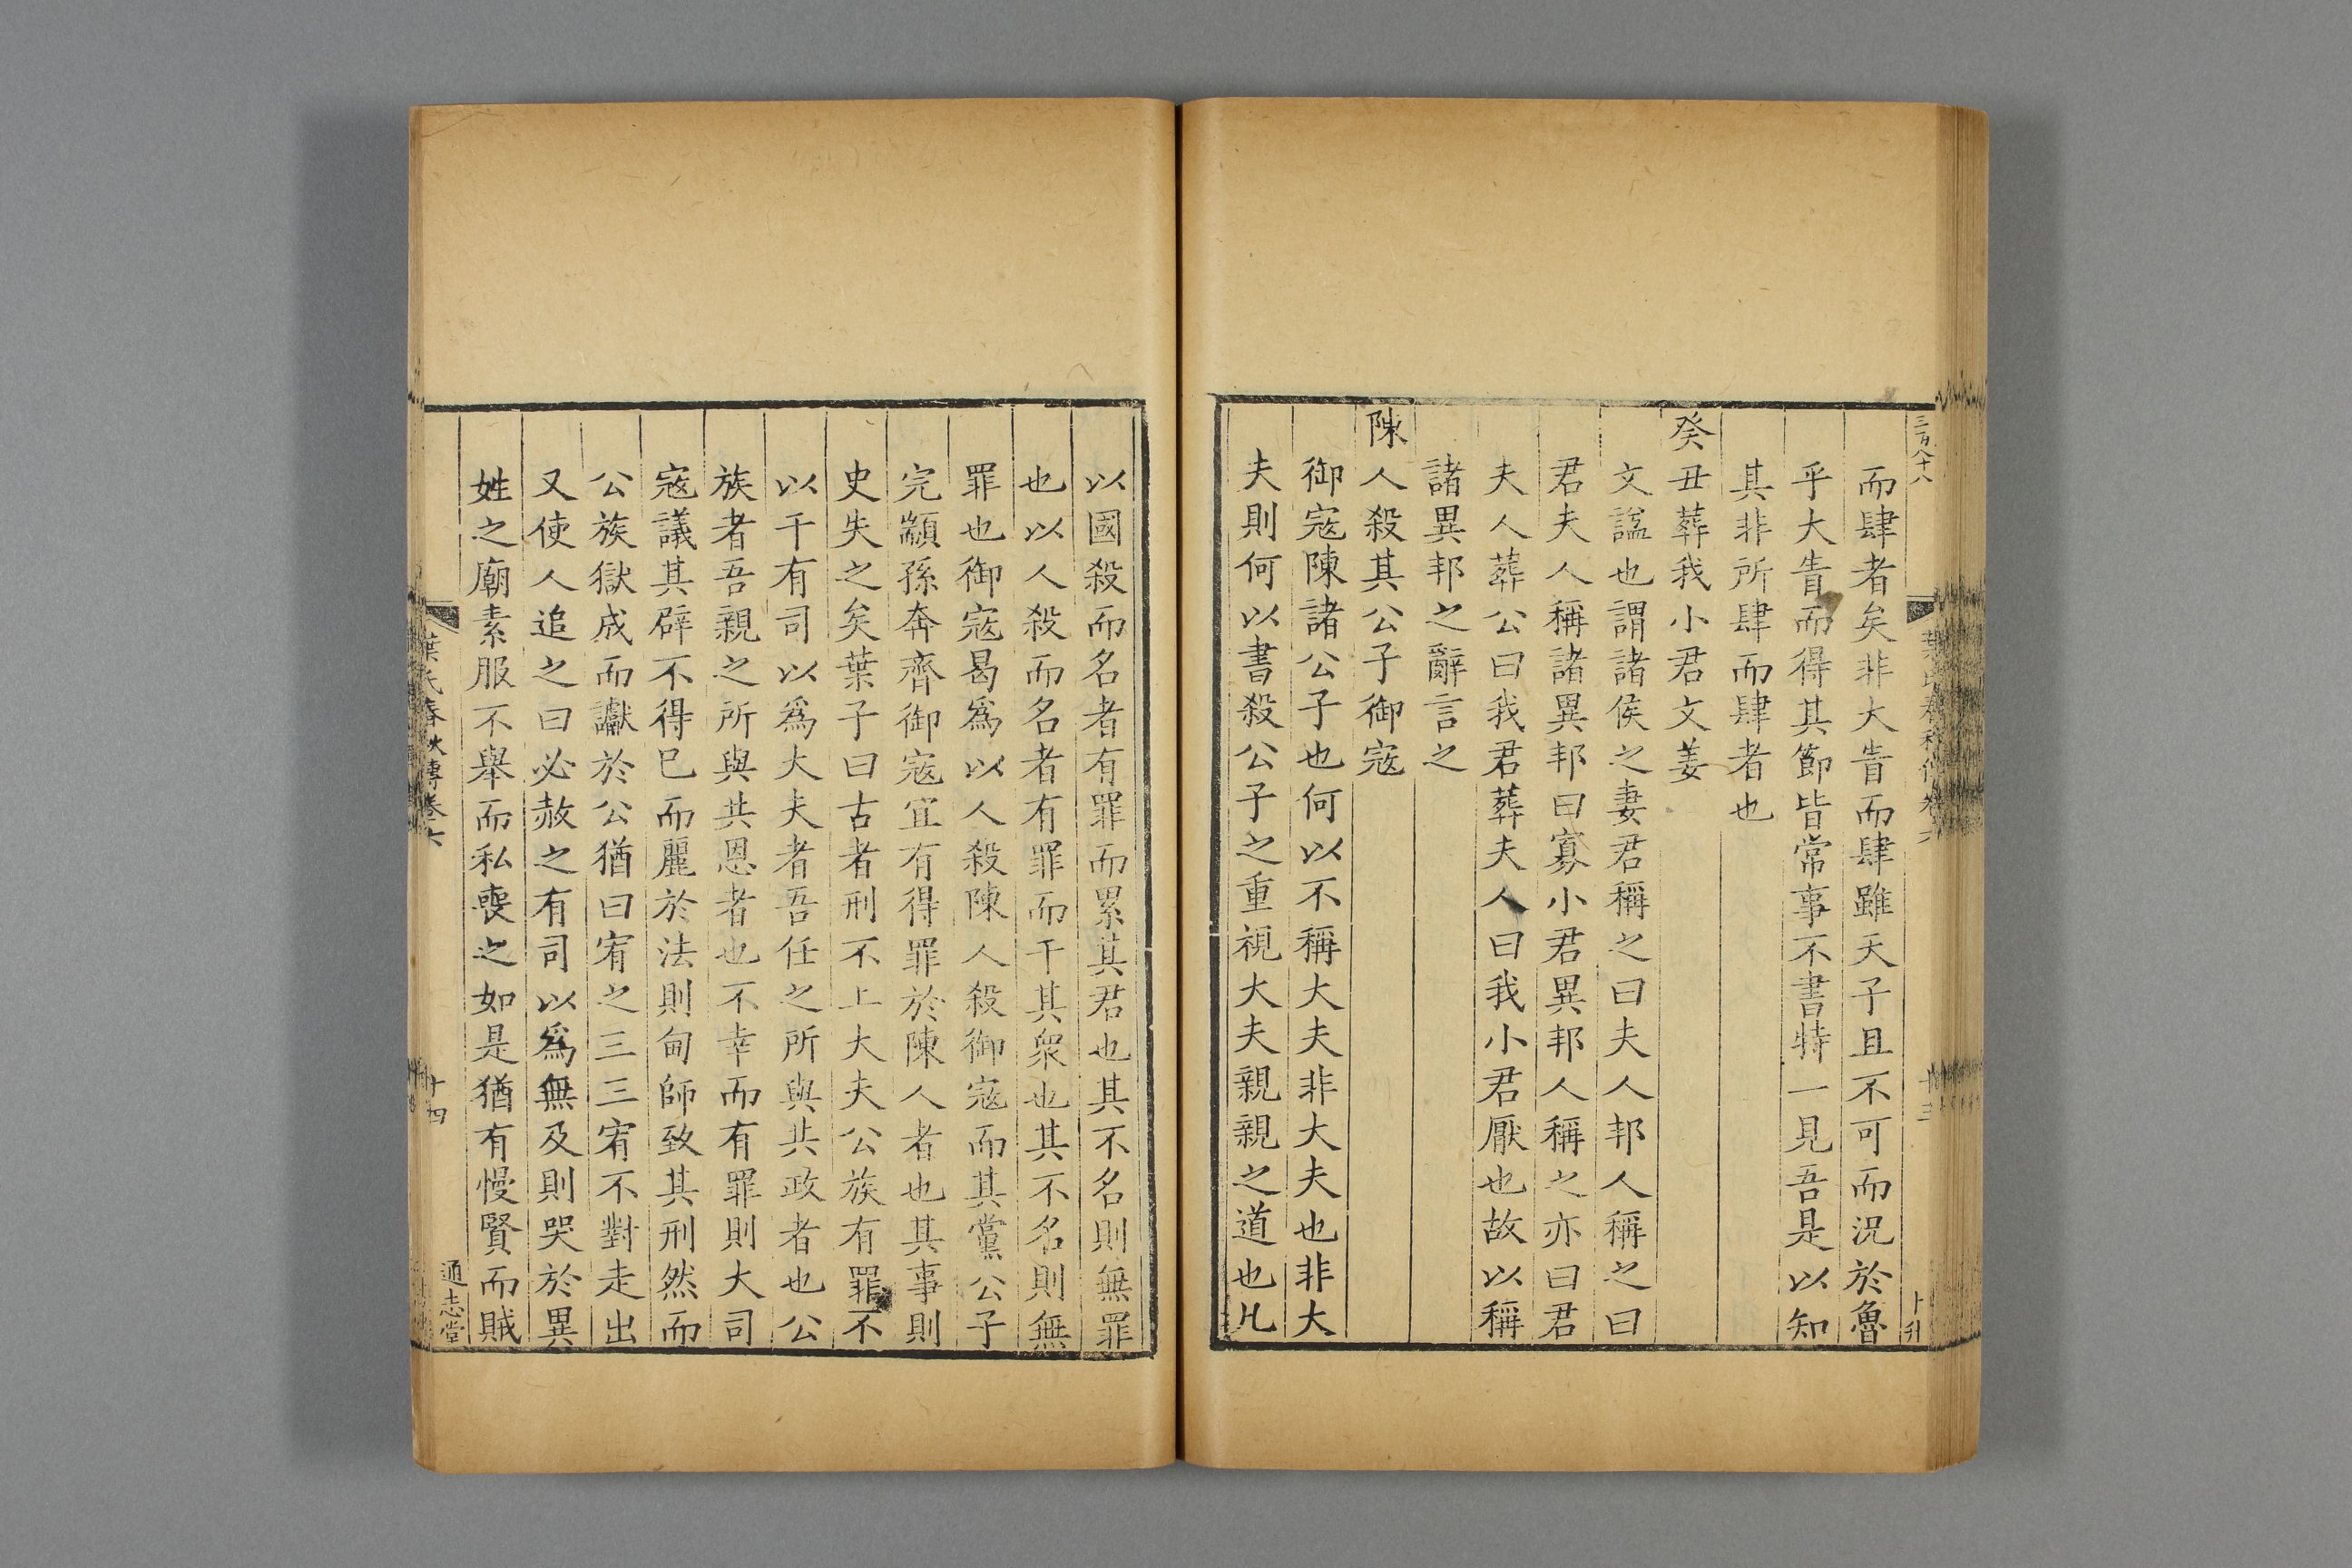 三百八十八
而肆者矣非大眚而肆雖天子且不可而況於魯
乎大眚而得其節皆常事不書特一見吾是以知
其非所肆而肆者也
癸丑葬我小君文姜
文諡也謂諸侯之妻君稱之曰夫人邦人稱之曰
君夫人稱諸異邦曰寡小君異邦人稱之亦曰君
夫人葬公曰我君葬夫人曰我小君厭也故以稱
諸異邦之辭言之
陳人殺其公子御寇
御寇陳諸公子也何以不稱大夫非大夫也非大
夫則何以書殺公子之重視大夫親親之道也凡
以國殺而名者有罪而累其君也其不名則無罪
也以人殺而名者有罪而干其衆也其不名則無
罪也御寇曷爲以人殺陳人殺御寇而其黨公子
完顓孫奔齊御寇宜有得罪於陳人者也其事則
史失之矣葉子曰古者刑不上大夫公族有罪不
以干有司以爲大夫者吾任之所與共政者也公
族者吾親之所與共恩者也不幸而有罪則大司
寇議其辟不得已而麗於法則甸師致其刑然而
公族獄成而讞於公猶曰宥之三三宥不對走出
又使人追之曰必赦之有司以爲無及則哭於異
姓之廟素服不舉而私喪之如是猶有慢賢而賊
葉氏春秋傳卷六
十四
通志堂